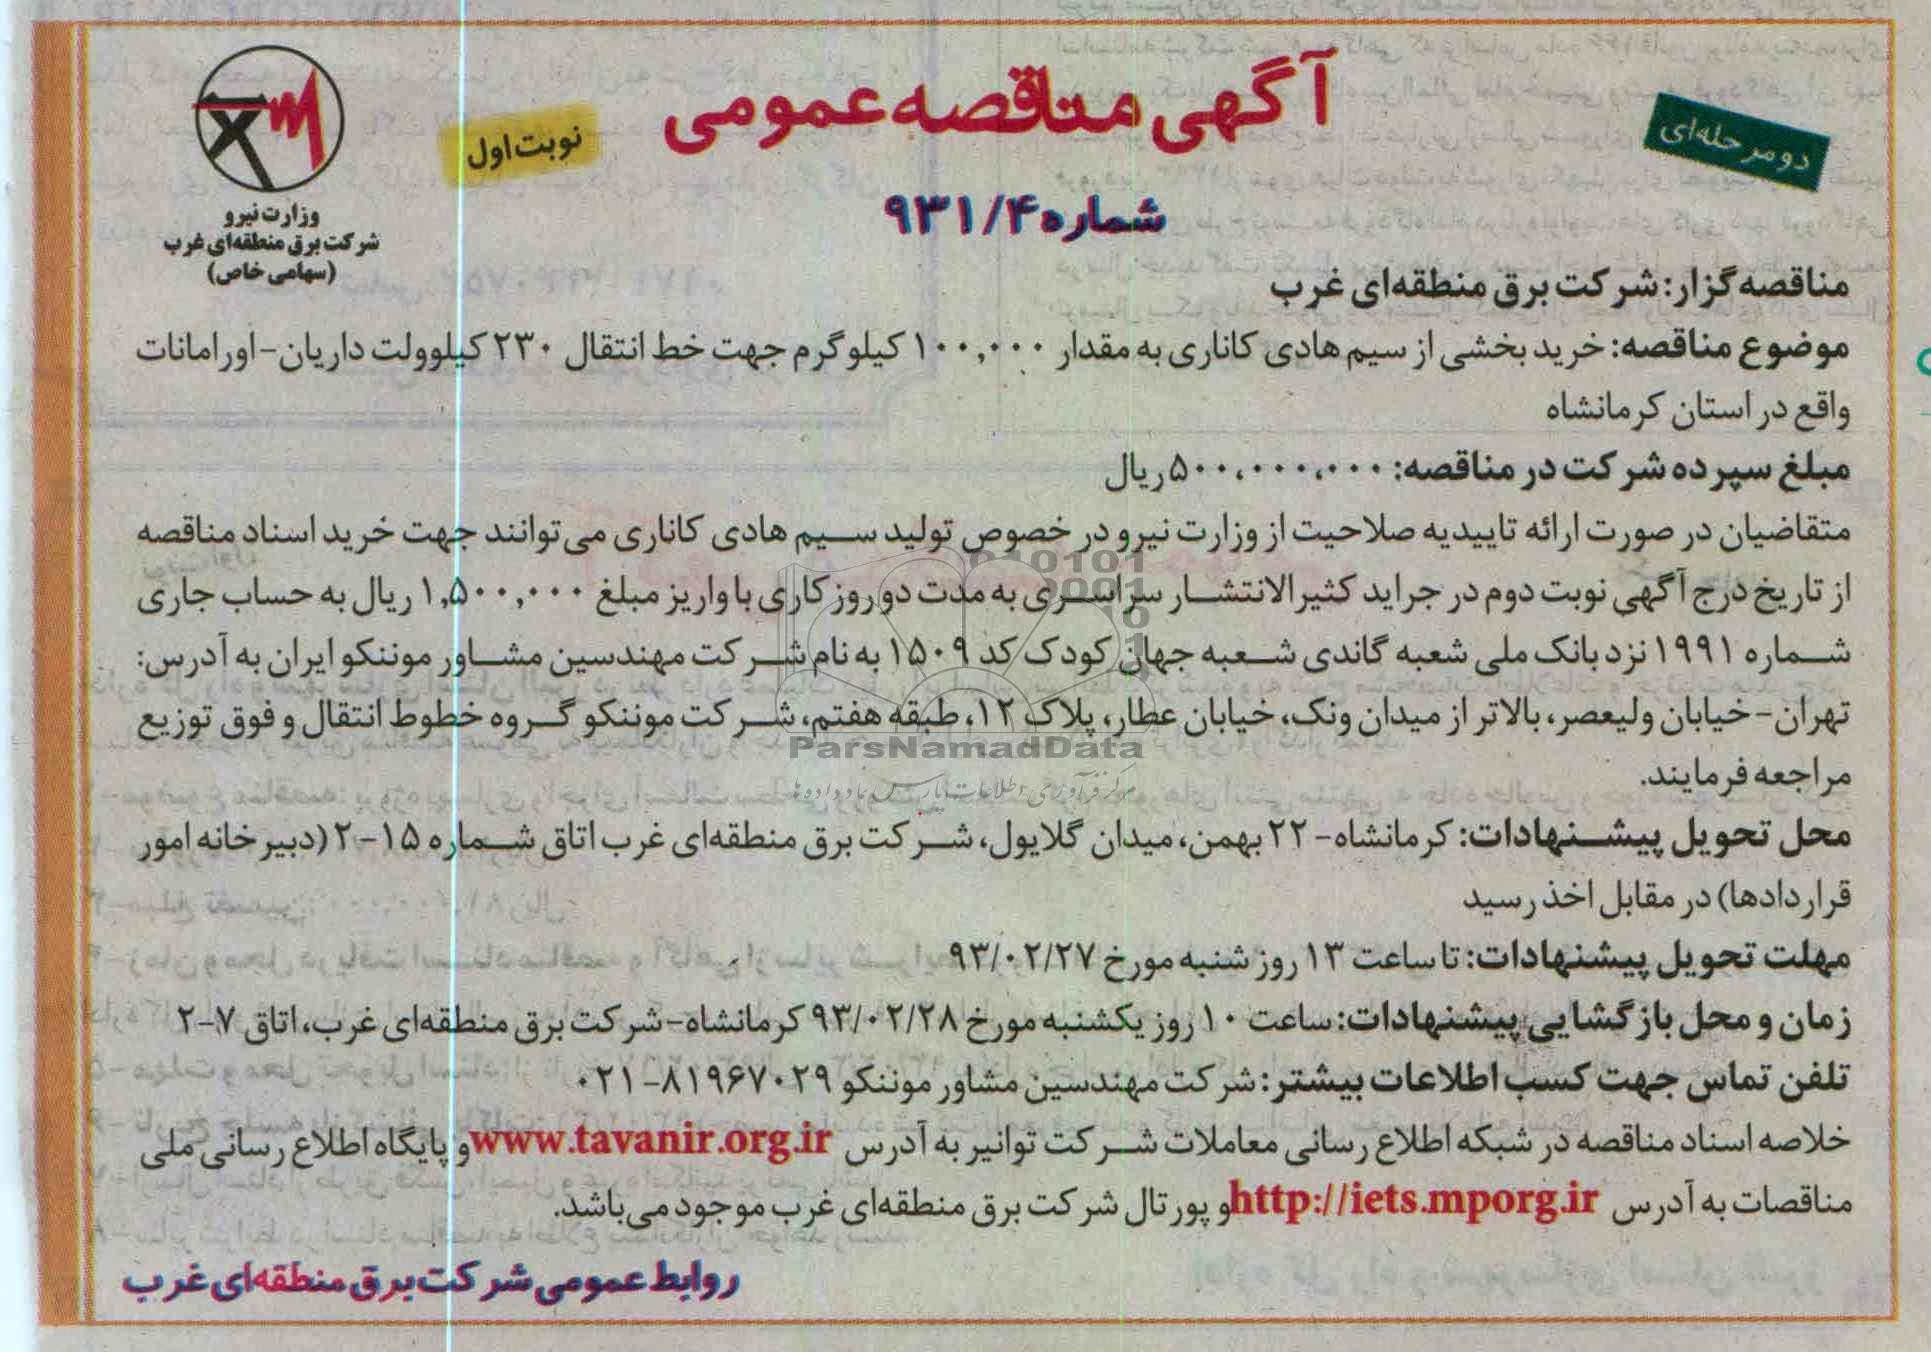 دو مرحله‌ای
آگهی مناقصه عمومی
نوبت اول
شماره ۹۳۱/۴
وزارت نیرو
شرکت برق منطقه‌ای غرب
(سهامی خاص)
مناقصه گزار: شرکت برق منطقه‌ای غرب
موضوع مناقصه: خرید بخشی از سیم هادی کاناری به مقدار ۱۰۰,۰۰۰ کیلوگرم جهت خط انتقال ۲۳۰ کیلوولت داریان-اورامانات
واقع در استان کرمانشاه
مبلغ سپرده شرکت در مناقصه: ۵۰۰،۰۰۰،۰۰۰ ریال
متقاضیان در صورت ارائه تاییدیه صلاحیت از وزارت نیرو در خصوص تولید سیم هادی کاناری می‌توانند جهت خرید اسناد مناقصه
از تاریخ درج آگهی نوبت دوم در جراید کثیرالانتشار سراسری به مدت دو روز کاری با واریز مبلغ ۱,۵۰۰,۰۰۰ ریال به حساب جاری
شماره ۱۹۹۱ نزد بانک ملی شعبه گاندی شعبه جهان کودک کد ۱۵۰۹ به نام شرکت مهندسین مشاور موننکو ایران به آدرس:
تهران-خیابان ولیعصر، بالاتر از میدان ونک، خیابان عطار، پلاک ۱۲، طبقه هفتم، شرکت موننکو گروه خطوط انتقال و فوق توزیع
مراجعه فرمایند.
محل تحویل پیشنهادات: کرمانشاه- ۲۲ بهمن، میدان گلایول، شرکت برق منطقه‌ای غرب اتاق شماره ۱۵-۲ (دبیرخانه امور
قراردادها) در مقابل اخذ رسید
مهلت تحویل پیشنهادات: تا ساعت ۱۳ روز شنبه مورخ ۹۳/۰۲/۲۷
زمان و محل بازگشایی پیشنهادات: ساعت ۱۰ روز یکشنبه مورخ ۹۳/۰۲/۲۸ کرمانشاه-شرکت برق منطقه‌ای غرب، اتاق ۷-۲
تلفن تماس جهت کسب اطلاعات بیشتر: شرکت مهندسین مشاور موننکو ۸۱۹۶۷۰۲۹-۰۲۱
خلاصه اسناد مناقصه در شبکه اطلاع رسانی معاملات شرکت توانیر به آدرس www.tavanir.org.ir و پایگاه اطلاع رسانی ملی
مناقصات به آدرس http://iets.mporg.ir و پورتال شرکت برق منطقه‌ای غرب موجود می‌باشد.
روابط عمومی شرکت برق منطقه‌ای غرب
ParsNamadData
مرکز فرآوری اطلاعات پارس نماد داده ها